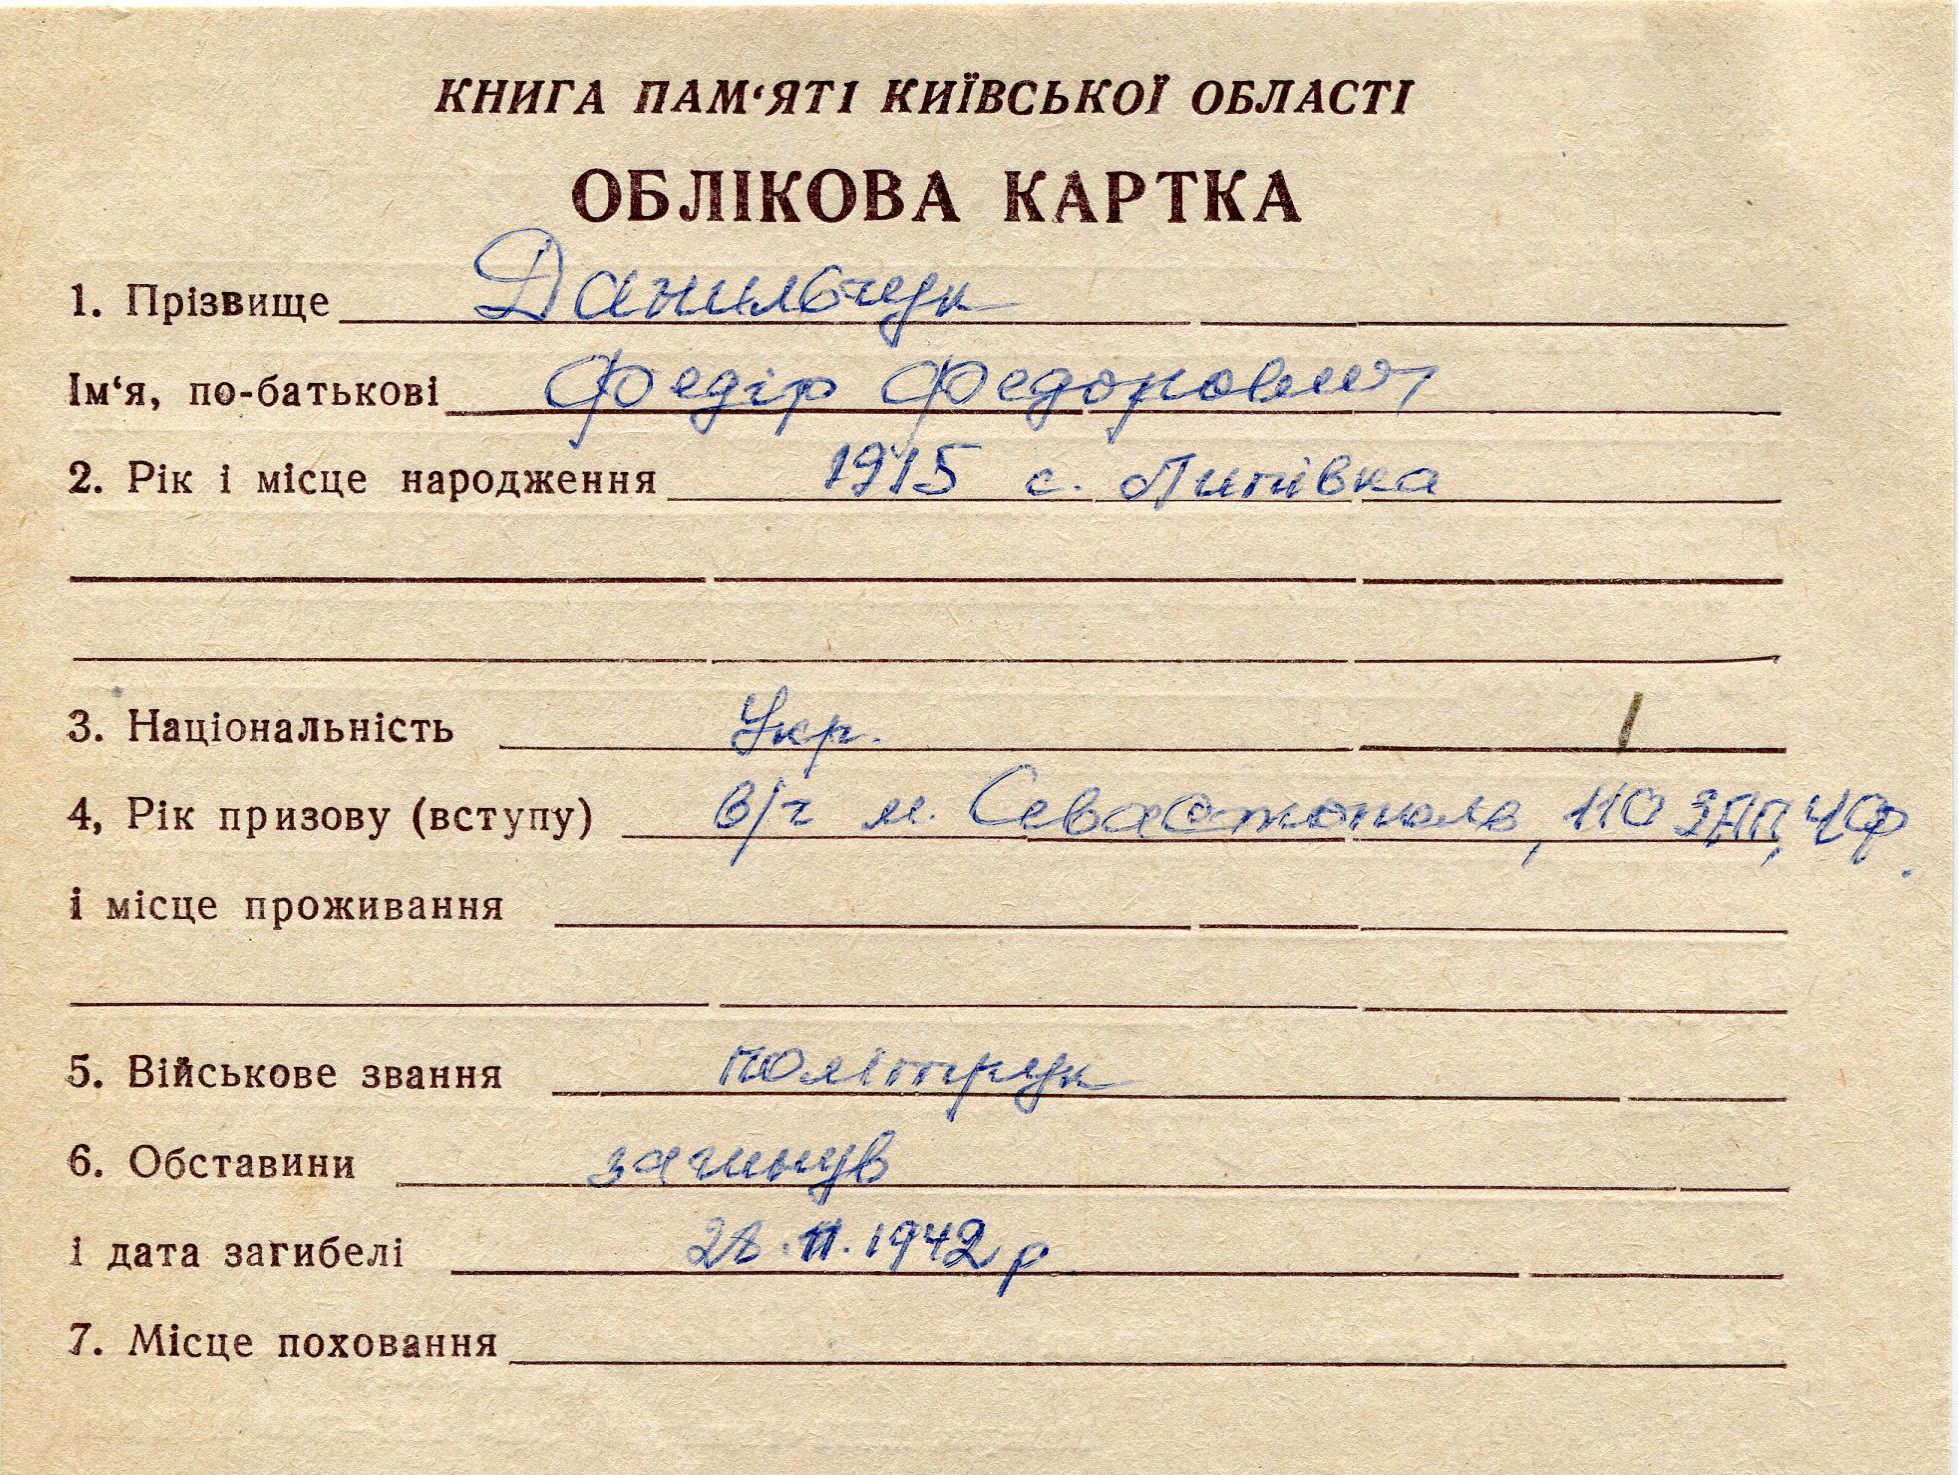 КНИГА ПАМ‘ЯТІ КИЇВСЬКОЇ ОБЛАСТІ
ОБЛІКОВА КАРТКА
1. Прізвище Данильчук
Ім‘я, по-батькові Федір Федорович
2. Рік і місце народження 1915 с. Липівка
3. Національність Укр.
4, Рік призову (вступу) в/ч м. Севастополь, 110 ЗАП, ЧФ.
і місце проживання
5. Військове звання політрук
6. Обставини загинув
і дата загибелі 28.11.1942 р
7. Місце поховання